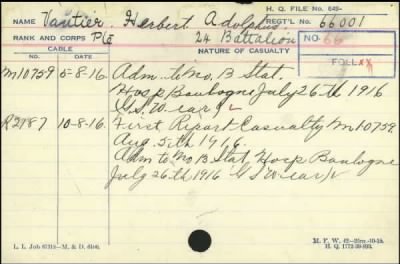 H. Q. FILE No. 649-
NAME Vautier, Herbert Adolphus. REGT'L No. 66001
RANK AND CORPS Pte 24 Battalion
CABLE NATURE OF CASUALTY
NO. 66
FOLL XX
M10759 5-8-16. Adm to No. 13 Stat.
Hosp Boulogne July 26th 1916
G.S.W. ear) L
R2187 10-8-16. First Report Casualty M10759
Aug. 5th 1916.
Adm to No 13 Stat Hosp Boulogne
July 26th 1916 G S W ear)
L. L. Job 67215—M. & D. 6406.
M. F. W. 42—25m.-10-15.
H. Q. 1772-39-893.